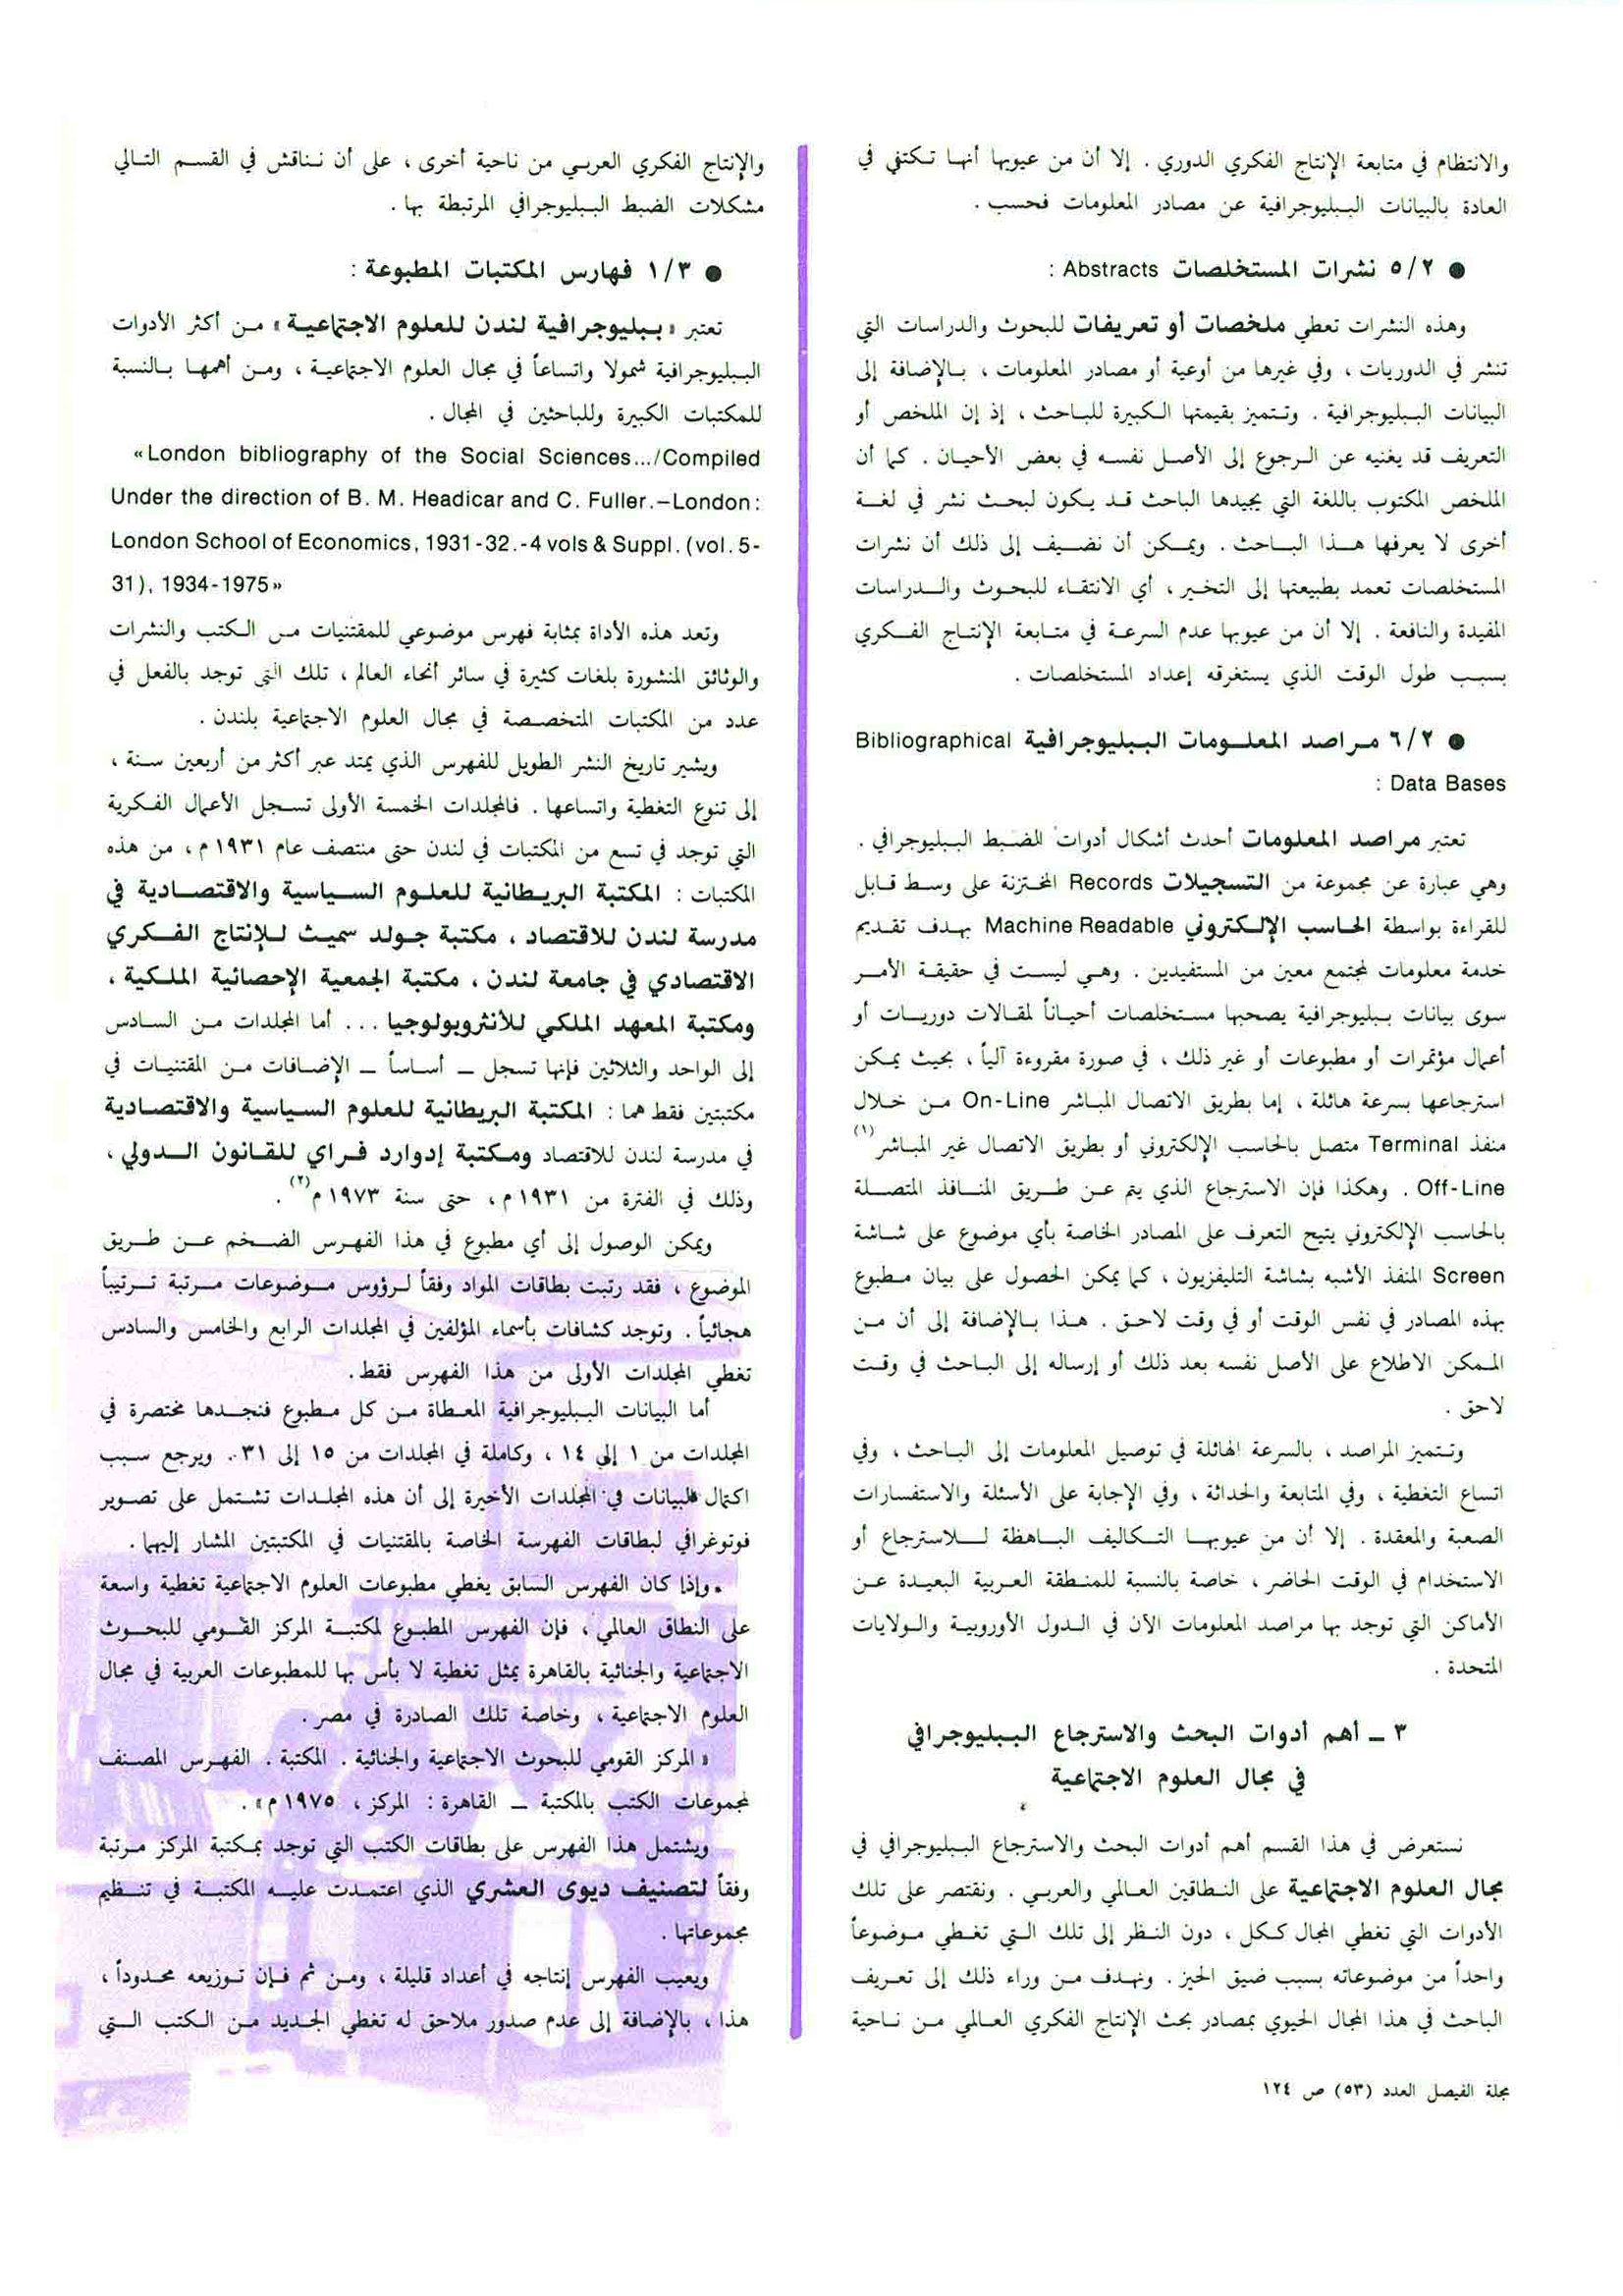 والانتظام في متابعة الإنتاج الفكري الدوري . إلا أن من عيوبها أنها تكتفي في
العادة بالبيانات الببليوجرافية عن مصادر المعلومات فحسب .
● ٥/٢ نشرات المستخلصات Abstracts :
وهذه النشرات تعطي ملخصات أو تعريفات للبحوث والدراسات التي
تنشر في الدوريات ، وفي غيرها من أوعية أو مصادر المعلومات ، بالإضافة إلى
البيانات الببليوجرافية . وتتميز بقيمتها الكبيرة للباحث ، إذ إن الملخص أو
التعريف قد يغنيه عن الرجوع إلى الأصل نفسه في بعض الأحيان . كما أن
الملخص المكتوب باللغة التي يجيدها الباحث قد يكون لبحث نشر في لغة
أخرى لا يعرفها هذا الباحث . ويمكن أن نضيف إلى ذلك أن نشرات
المستخلصات تعمد بطبيعتها إلى التخير ، أي الانتقاء للبحوث والدراسات
المفيدة والنافعة . إلا أن من عيوبها عدم السرعة في متابعة الإنتاج الفكري
بسبب طول الوقت الذي يستغرقه إعداد المستخلصات .
● ٦/٢ مراصد المعلومات الببليوجرافية Bibliographical
Data Bases :
تعتبر مراصد المعلومات أحدث أشكال أدوات الضبط الببليوجرافي .
وهي عبارة عن مجموعة من التسجيلات Records المختزنة على وسط قابل
للقراءة بواسطة الحاسب الإلكتروني Machine Readable بهدف تقديم
خدمة معلومات لمجتمع معين من المستفيدين . وهي ليست في حقيقة الأمر
سوى بيانات ببليوجرافية يصحبها مستخلصات أحياناً لمقالات دوريات أو
أعمال مؤتمرات أو مطبوعات أو غير ذلك ، في صورة مقروءة آلياً ، بحيث يمكن
استرجاعها بسرعة هائلة ، إما بطريق الاتصال المباشر On-Line من خلال
منفذ Terminal متصل بالحاسب الإلكتروني أو بطريق الاتصال غير المباشر(١)
Off-Line . وهكذا فإن الاسترجاع الذي يتم عن طريق المنافذ المتصلة
بالحاسب الإلكتروني يتيح التعرف على المصادر الخاصة بأي موضوع على شاشة
Screen المنفذ الأشبه بشاشة التليفزيون ، كما يمكن الحصول على بيان مطبوع
بهذه المصادر في نفس الوقت أو في وقت لاحق . هذا بالإضافة إلى أن من
الممكن الاطلاع على الأصل نفسه بعد ذلك أو إرساله إلى الباحث في وقت
لاحق .
وتتميز المراصد ، بالسرعة الهائلة في توصيل المعلومات إلى الباحث ، وفي
اتساع التغطية ، وفي المتابعة والحداثة ، وفي الإجابة على الأسئلة والاستفسارات
الصعبة والمعقدة . إلا أن من عيوبها التكاليف الباهظة للاسترجاع أو
الاستخدام في الوقت الحاضر ، خاصة بالنسبة للمنطقة العربية البعيدة عن
الأماكن التي توجد بها مراصد المعلومات الآن في الدول الأوروبية والولايات
المتحدة .
٣ ـ أهم أدوات البحث والاسترجاع الببليوجرافي
في مجال العلوم الاجتماعية
نستعرض في هذا القسم أهم أدوات البحث والاسترجاع الببليوجرافي في
مجال العلوم الاجتماعية على النطاقين العالمي والعربي . ونقتصر على تلك
الأدوات التي تغطي المجال ككل ، دون النظر إلى تلك التي تغطي موضوعاً
واحداً من موضوعاته بسبب ضيق الحيز . ونهدف من وراء ذلك إلى تعريف
الباحث في هذا المجال الحيوي بمصادر بحث الإنتاج الفكري العالمي من ناحية
والإنتاج الفكري العربي من ناحية أخرى ، على أن نناقش في القسم التالي
مشكلات الضبط الببليوجرافي المرتبطة بها .
● ١/٣ فهارس المكتبات المطبوعة :
تعتبر « ببليوجرافية لندن للعلوم الاجتماعية » من أكثر الأدوات
الببليوجرافية شمولا واتساعاً في مجال العلوم الاجتماعية ، ومن أهمها بالنسبة
للمكتبات الكبيرة وللباحثين في المجال .
«London bibliography of the Social Sciences.../Compiled
Under the direction of B. M. Headicar and C. Fuller.–London:
London School of Economics, 1931-32.-4 vols & Suppl. (vol. 5-
31), 1934-1975»
وتعد هذه الأداة بمثابة فهرس موضوعي للمقتنيات من الكتب والنشرات
والوثائق المنشورة بلغات كثيرة في سائر أنحاء العالم ، تلك التي توجد بالفعل في
عدد من المكتبات المتخصصة في مجال العلوم الاجتماعية بلندن .
ويشير تاريخ النشر الطويل للفهرس الذي يمتد عبر أكثر من أربعين سنة ،
إلى تنوع التغطية واتساعها . فالمجلدات الخمسة الأولى تسجل الأعمال الفكرية
التي توجد في تسع من المكتبات في لندن حتى منتصف عام ١٩٣١ م ، من هذه
المكتبات : المكتبة البريطانية للعلوم السياسية والاقتصادية في
مدرسة لندن للاقتصاد ، مكتبة جولد سميث للإنتاج الفكري
الاقتصادي في جامعة لندن ، مكتبة الجمعية الإحصائية الملكية ،
ومكتبة المعهد الملكي للأنثروبولوجيا ... أما المجلدات من السادس
إلى الواحد والثلاثين فإنها تسجل ـ أساساً ـ الإضافات من المقتنيات في
مكتبتين فقط هما : المكتبة البريطانية للعلوم السياسية والاقتصادية
في مدرسة لندن للاقتصاد ومكتبة إدوارد فراي للقانون الدولي ،
وذلك في الفترة من ١٩٣١ م ، حتى سنة ١٩٧٣ م(٢) .
ويمكن الوصول إلى أي مطبوع في هذا الفهرس الضخم عن طريق
الموضوع ، فقد رتبت بطاقات المواد وفقاً لرؤوس موضوعات مرتبة ترتيباً
هجائياً . وتوجد كشافات بأسماء المؤلفين في المجلدات الرابع والخامس والسادس
تغطي المجلدات الأولى من هذا الفهرس فقط .
أما البيانات الببليوجرافية المعطاة من كل مطبوع فنجدها مختصرة في
المجلدات من ١ إلى ١٤ ، وكاملة في المجلدات من ١٥ إلى ٣١ . ويرجع سبب
اكتمال البيانات في المجلدات الأخيرة إلى أن هذه المجلدات تشتمل على تصوير
فوتوغرافي لبطاقات الفهرسة الخاصة بالمقتنيات في المكتبتين المشار إليهما .
وإذا كان الفهرس السابق يغطي مطبوعات العلوم الاجتماعية تغطية واسعة
على النطاق العالمي ، فإن الفهرس المطبوع لمكتبة المركز القومي للبحوث
الاجتماعية والجنائية بالقاهرة يمثل تغطية لا بأس بها للمطبوعات العربية في مجال
العلوم الاجتماعية ، وخاصة تلك الصادرة في مصر .
« المركز القومي للبحوث الاجتماعية والجنائية . المكتبة . الفهرس المصنف
لمجموعات الكتب بالمكتبة ـ القاهرة : المركز ، ١٩٧٥ م » .
ويشتمل هذا الفهرس على بطاقات الكتب التي توجد بمكتبة المركز مرتبة
وفقاً لتصنيف ديوى العشري الذي اعتمدت عليه المكتبة في تنظيم
مجموعاتها .
ويعيب الفهرس إنتاجه في أعداد قليلة ، ومن ثم فإن توزيعه محدوداً ،
هذا ، بالإضافة إلى عدم صدور ملاحق له تغطي الجديد من الكتب التي
مجلة الفيصل العدد (٥٣) ص ١٢٤